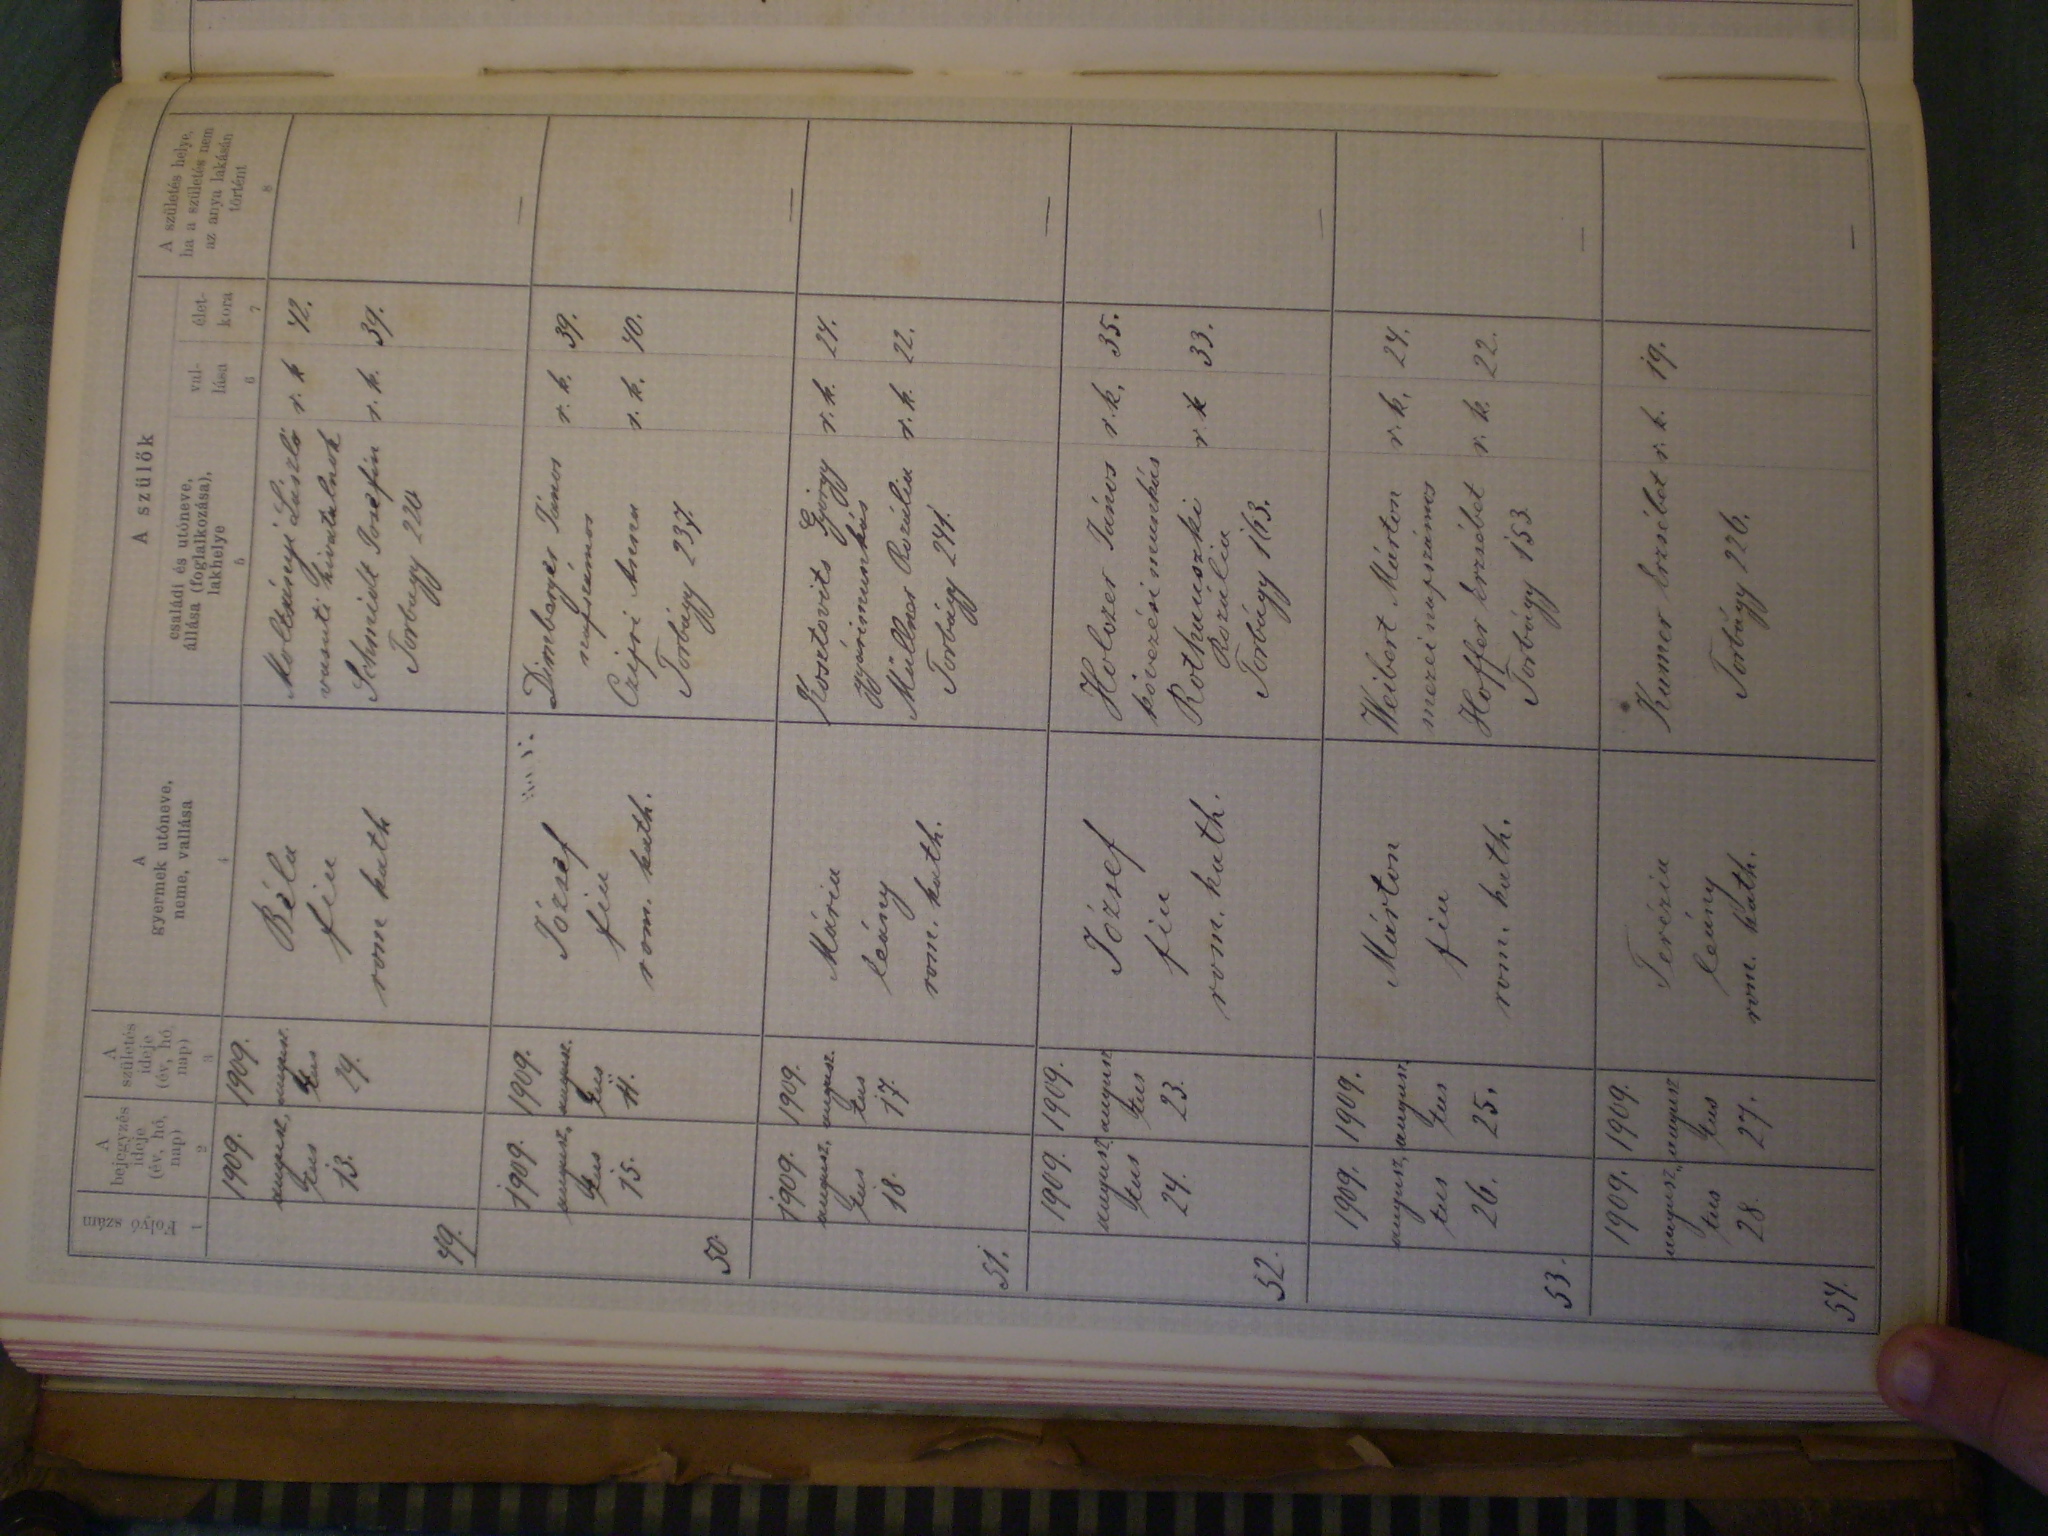 Folyó szám
A bejegyzés ideje (év, hó, nap)
A születés ideje (év, hó nap)
A gyermek utóneve, neme, vallása
A szülők
családi és utóneve, állása (foglalkozása), lakhelye
val-lása
élet-kora
A születés helye, ha a születés nem az anya lakásán történt
1 2 3 4 5 6 7 8
49.
1909.
augusz,
tus
13.
1909.
augusz.
tus
Béla
fiu
rom kath
László r. k 42.
vasuti hivatalnok
Schmidt Josefin r. k. 39.
Torbágy 220
—
50.
1909.
augusz,
tus
15.
1909.
augusz.
tus
11.
József
fiu
rom. kath.
Dimberger János r. k. 39.
napszámos
Czifri Anna r. k. 40.
Torbágy 237.
—
51.
1909.
augusz,
tus
18.
1909.
augusz.
tus
17.
Mária
leány
rom. kath.
Kosztovits György r. k. 24.
gyárimunkás
Müllner Rozália r. k. 22.
Torbágy 244.
—
52.
1909.
augusz,
tus
24.
1909.
augusz
tus
23.
József
fiu
rom. kath.
Holczer János r. k. 35.
munkás
r. k 33.
Rozália
Torbágy 163.
—
53.
1909.
augusz,
tus
26.
1909.
augusz
tus
25.
Márton
fiu
rom. kath.
Weibert Márton r. k. 24.
mezei napszámos
Hoffer Erzsébet r. k. 22.
Torbágy 153.
—
54.
1909.
augusz,
tus
28.
1909.
augusz
tus
27.
Terézia
leány
rom. kath.
Kumer Erzsébet r. k. 19.
Torbágy 226.
—